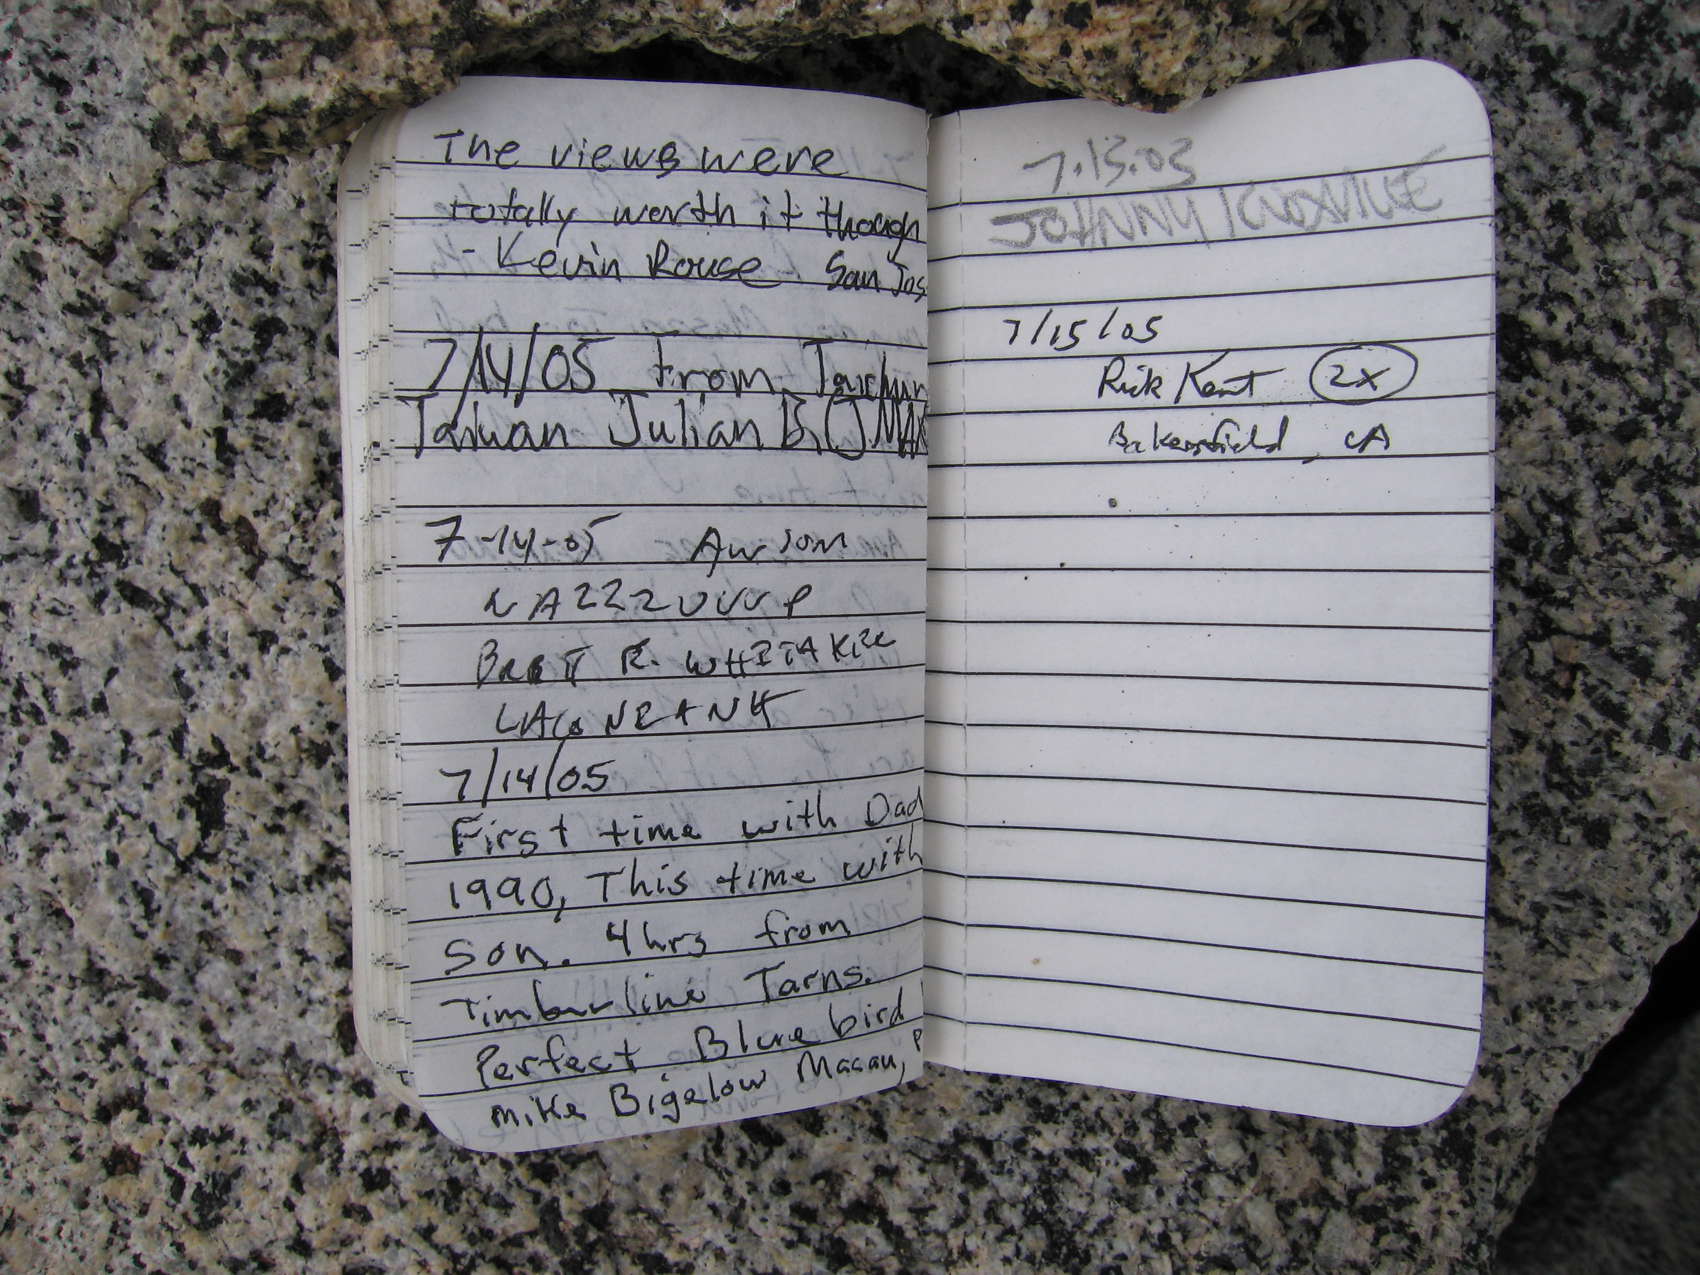 The views were
totally worth it though
- Kevin Rouse - San Jos
7/14/05 From
Taiwan Julian B.
7-14-05 Awsom
BRET R. WHITAKER
7/14/05
First time with Dad
1990, This time with
Son. 4 hrs from
Timberline Tarns.
Perfect Bluebird
Mike Bigelow Macau, P
7.15.05
JOHNNY KNOXVILLE
7/15/05
Rick Kent 2X
Bakersfield, CA